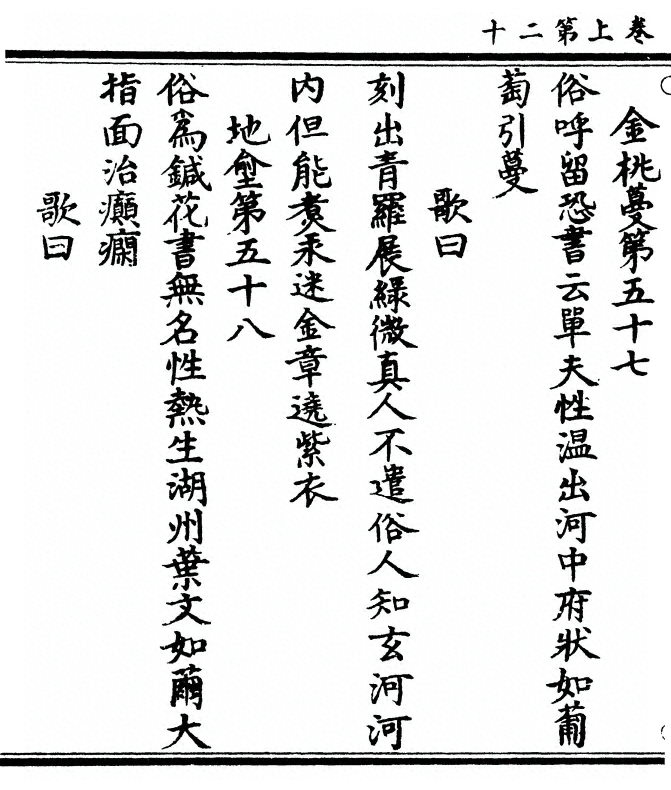 卷上第二十
金桃蔓第五十七
俗呼留恐書云單夫性温出河中府狀如葡
萄引蔓
歌曰
刻出青羅展緑微真人不遣俗人知玄河河
内但能煑汞迷金章遶紫衣
地壟第五十八
俗爲鍼花書無名性熱生湖州葉文如薾大
指面治癲癇
歌曰